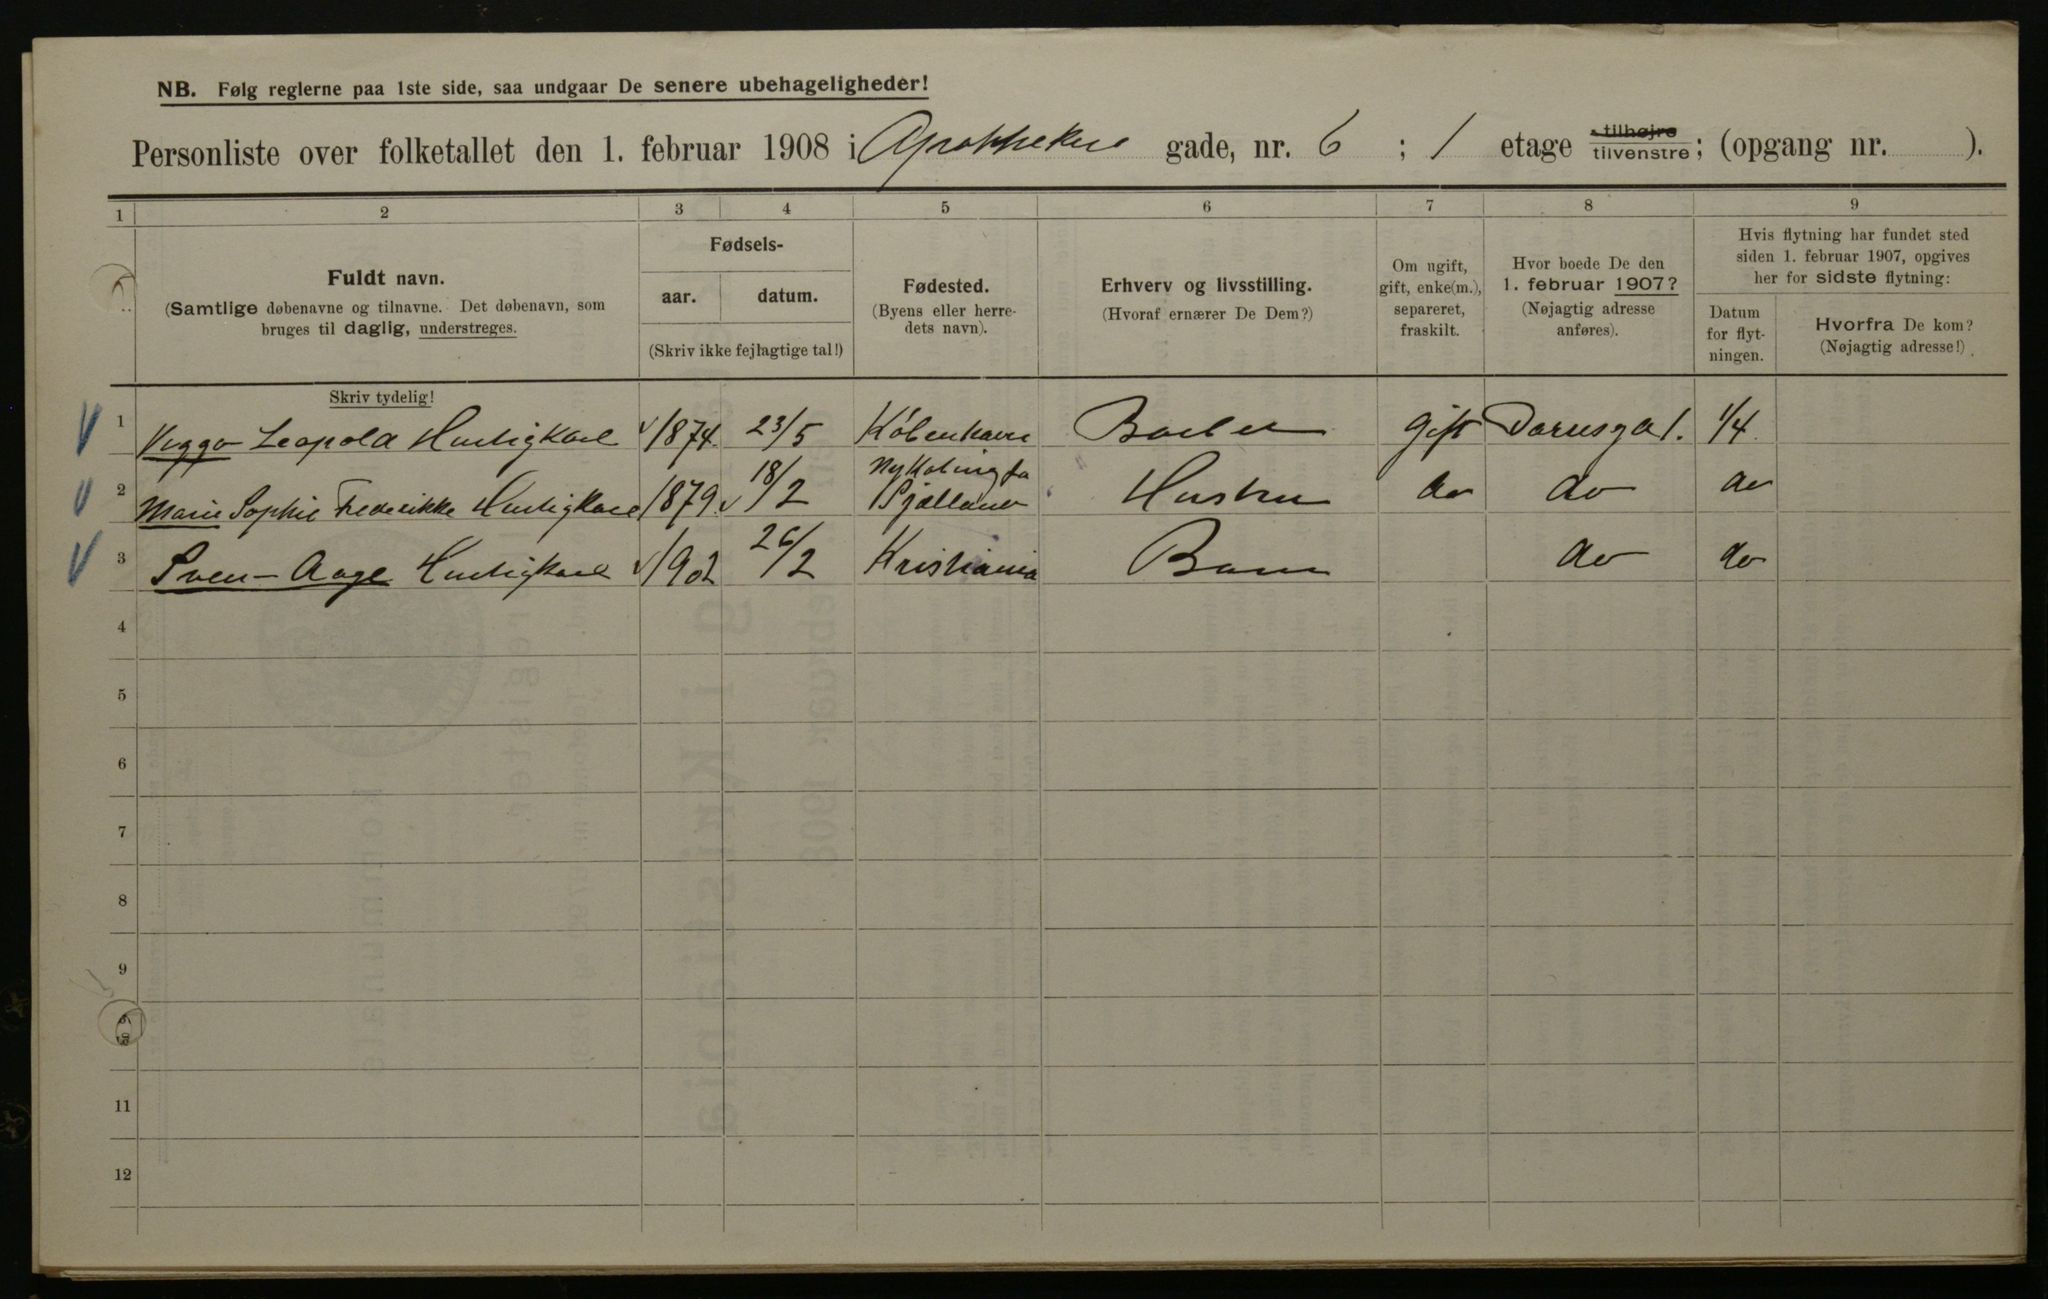 NB. Følg reglerne paa 1ste side, saa undgaar De senere ubehageligheder!
Personliste over folketallet den 1. februar 1908 i Apothekere gade, nr. 6 ; 1 etage tilhøjre tilvenstre; (opgang nr. ).
1 2 3 4 5 6 7 8 9
Fuldt navn.
(Samtlige døbenavne og tilnavne. Det døbenavn, som
bruges til daglig, understreges.
Skriv tydelig!
Fødsels-
aar. datum.
(Skriv ikke fejlagtige tal!)
Fødested.
(Byens eller herre-
dets navn).
Erhverv og livsstilling.
(Hvoraf ernærer De Dem?)
Om ugift,
gift, enke(m.),
separeret,
fraskilt.
Hvor boede De den
1. februar 1907?
(Nøjagtig adresse
anføres).
Hvis flytning har fundet sted
siden 1. februar 1907, opgives
her for sidste flytning:
Datum
for flyt-
ningen.
Hvorfra De kom?
(Nøjagtig adresse!)
1 Viggo Leopold Hurtigkarl 1874 23/5 København Barber Gift 1. 1/4
2 Marie Sophie Frederikke Hurtigkarl 1879 18/2 Nykøbing Sjælland Hustru do do do
3 Sven-Aage Hurtigkarl 1902 26/2 Kristiania Barn do do
4
5
6
7
8
9
11
12